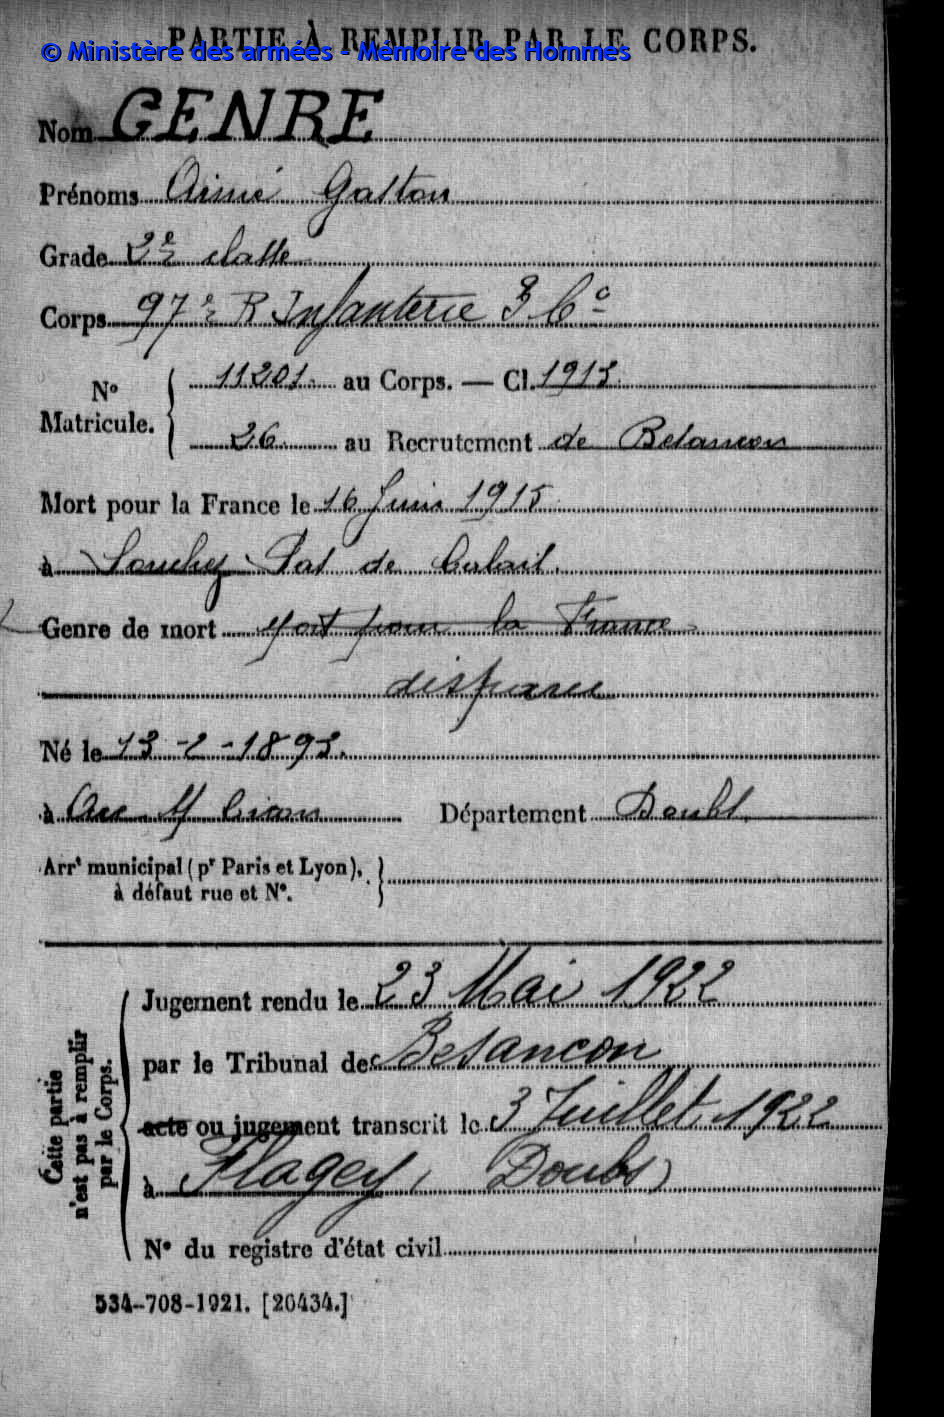 PARTIE À REMPLIR PAR LE CORPS.
© Ministère des armées - Mémoire des Hommes
Nom GENRE
Prénoms Aimé Gaston
Grade 2e classe
Corps 97e R Infanterie 8 Cie
No Matricule. { 11201. au Corps. — Cl. 1913.
26. au Recrutement de Besancon
Mort pour la France le 16 Juin 1915
à Souchez Pas de Calais.
Genre de mort Mort pour la France
disparu
Né le 13-2-1893.
à Arc Cicon Département Doubs.
Arrt municipal (pr Paris et Lyon), }
à défaut rue et No.
Cette partie n'est pas à remplir par le Corps.
Jugement rendu le 23 Mai 1922
par le Tribunal de Besancon
acte ou jugement transcrit le 3 Juillet 1922
à Flagey (Doubs)
No du registre d'état civil
534-708-1921. [26434.]